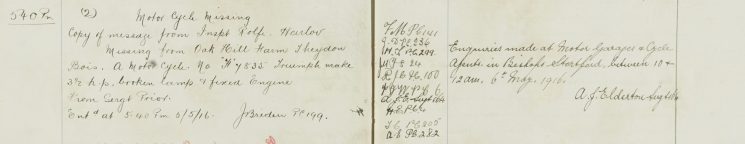 5 40 Pm
(2) Motor Cycle Missing
Copy of message from Inspt Rolfe. Harlow
Missing from Oak Hill Farm Theydon
Bois. A Motor Cycle. No 7835 Triumph make
3½ h.p. broken lamp & fixed Engine
From Sergt Prior.
Ent'd at 5.40 Pm 5/5/16. J Breden PC 199.
PC 141
PC 236
PC 299
24
PC 100
6
PC 305
A.E. PC 282
Enquiries made at Motor Garages & Cycle
Agents in Bishops Stortford, between 10 &
12 am. 6th May. 1916.
A. J. Elderton Sergt